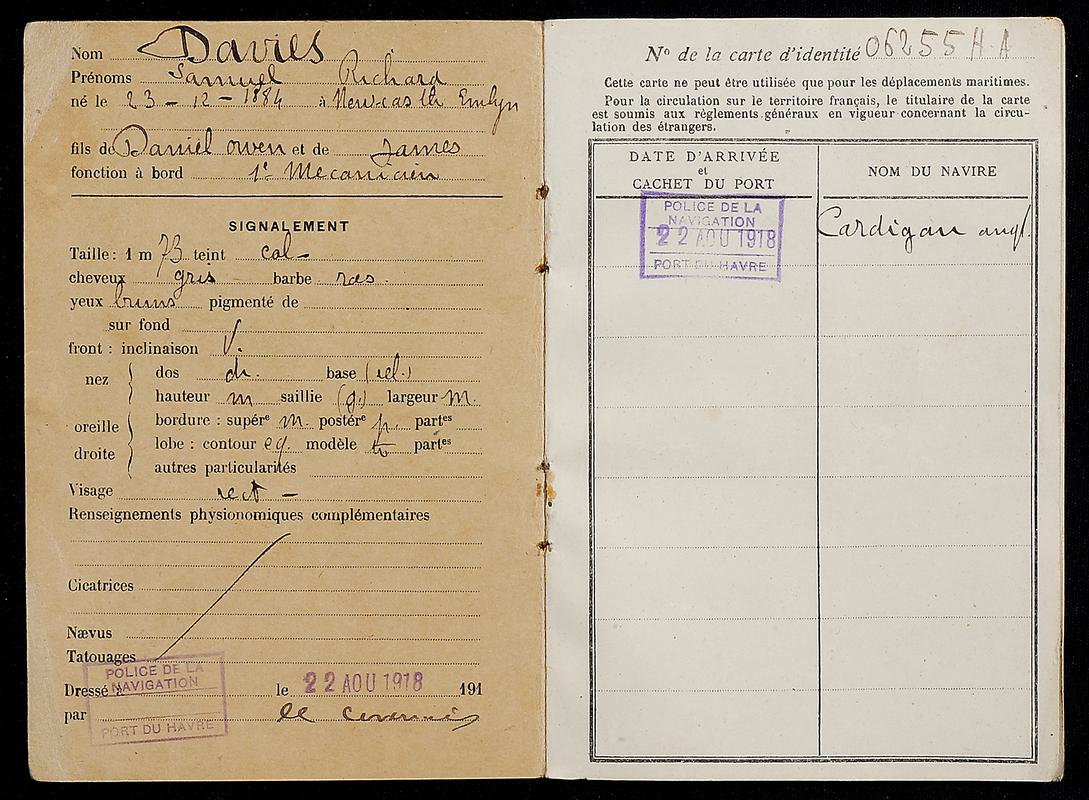 Nom Davies
Prénoms Samuel Richard
né le 23 - 12 - 1884 à Newcastle Emlyn
fils de Daniel Owen et de James
fonction à bord 1er Mécanicien
SIGNALEMENT
Taille : 1 m 73 teint col -
cheveux gris barbe ras.
yeux bruns pigmenté de
sur fond
front : inclinaison v.
nez
dos dr. base (rel.)
hauteur m saillie (g.) largeur m.
oreille droite
bordure : supére m. postére p. partes
lobe : contour eq modèle partes
autres particularités
Visage rect -
Renseignements physionomiques complémentaires
Cicatrices
Nævus
Tatouages
POLICE DE LA
NAVIGATION
Dressé à le 22 AOU 1918 191
par
PORT DU HAVRE
No de la carte d'identité 06255 H.A
Cette carte ne peut être utilisée que pour les déplacements maritimes.
Pour la circulation sur le territoire français, le titulaire de la carte
est soumis aux règlements généraux en vigueur concernant la circu-
lation des étrangers.
DATE D'ARRIVÉE
et
CACHET DU PORT
NOM DU NAVIRE
POLICE DE LA
NAVIGATION
22 AOU 1918
PORT DU HAVRE
Cardigan angl.